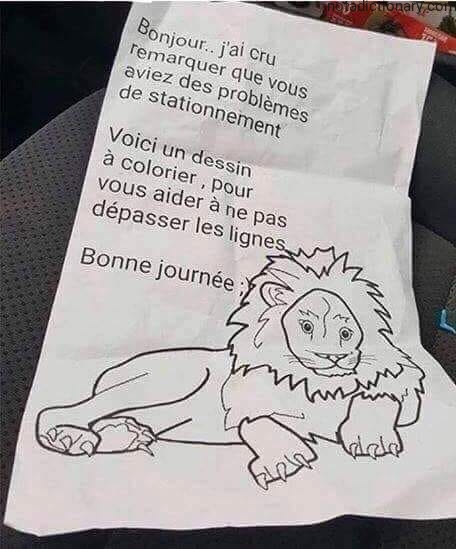 Bonjour.. j'ai cru
remarquer que vous
aviez des problèmes
de stationnement
Voici un dessin
à colorier , pour
vous aider à ne pas
dépasser les lignes
Bonne journée ;)